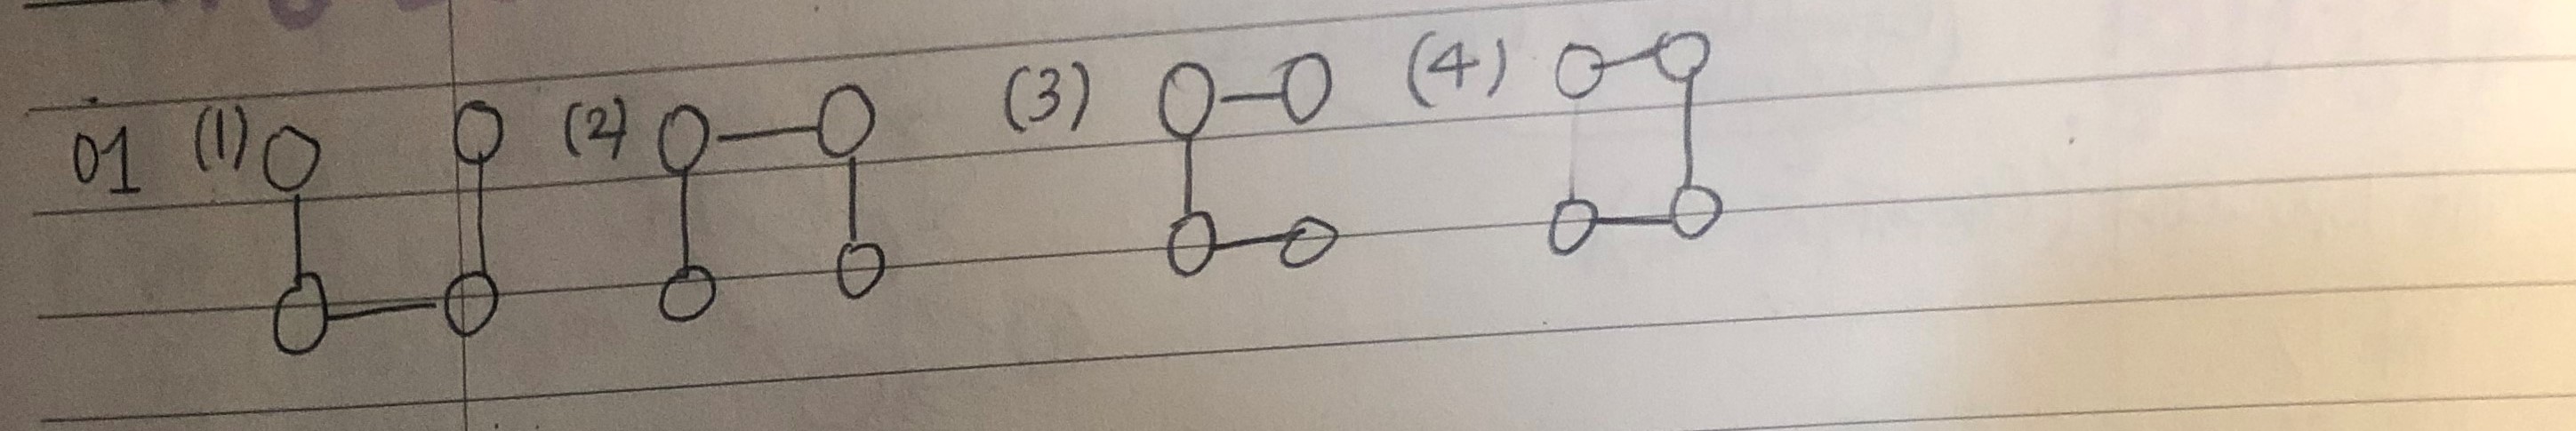 01 (1) (2) (3) (4)